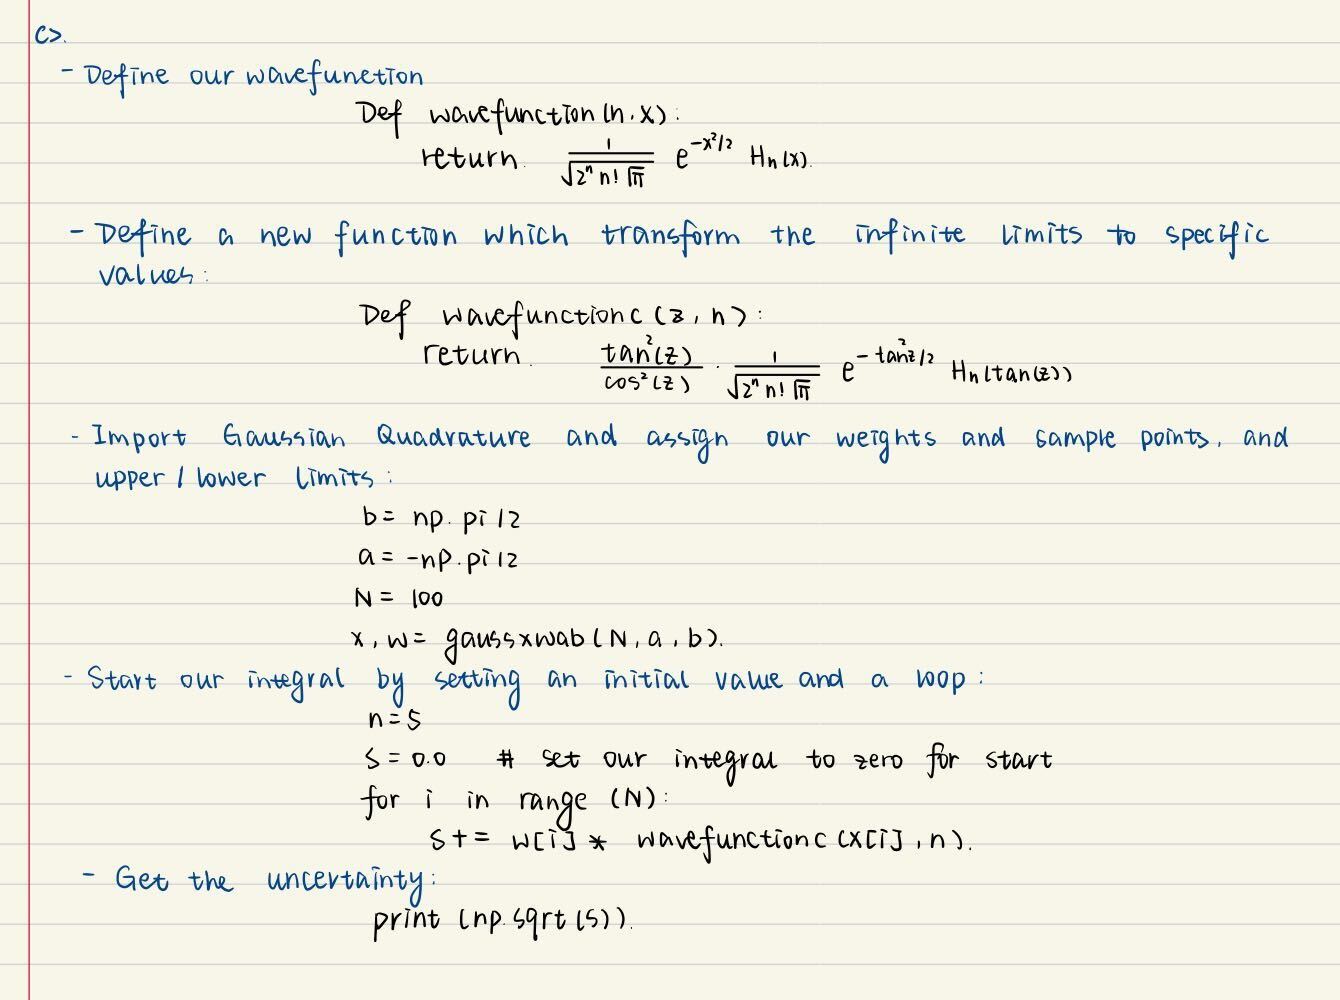 c>.
- Define our wavefunction
Def wavefunction(n,x):
return. 1/√(2ⁿ n! √π) e^(-x²/2) Hn(x).
- Define a new function which transform the infinite limits to specific
values:
Def wavefunctionc(z,n):
return. tan²(z)/cos²(z) · 1/√(2ⁿ n! √π) e^(-tan²z/2) Hn(tan(z))
- Import Gaussian Quadrature and assign our weights and sample points, and
upper/lower limits:
b= np.pi/2
a= -np.pi/2
N= 100
x,w= gaussxwab(N,a,b).
- Start our integral by setting an initial value and a loop:
n=5
S=0.0 # set our integral to zero for start
for i in range (N):
S+= w[i]* wavefunctionc(x[i],n).
- Get the uncertainty:
print (np.sqrt(s)).